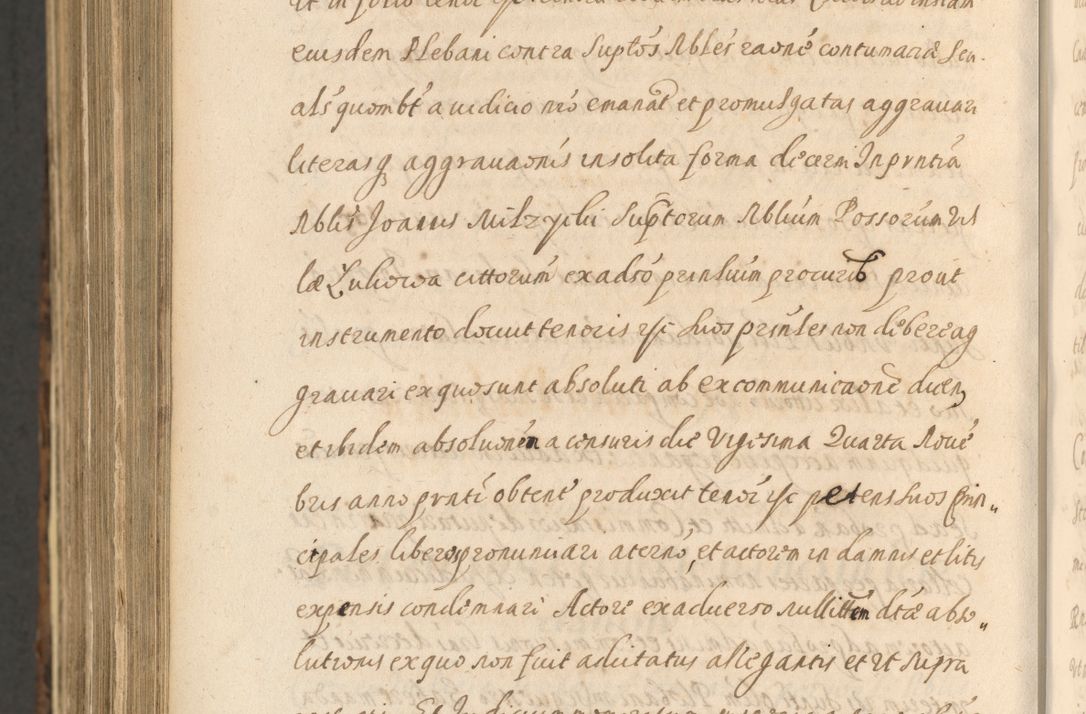 eiusdem Plebani contra Suptos Nbles raone contumaciæ seu
als quombt a iudicio nro emanat et promulgatas aggravari
literasq aggravaonis insolita forma decerni In pntia
Nblis Joannis Milzycki Suptorum Nblium Possorum Vil
læ Zukowa cittorum ex adso prinlium procuris prout
instrumento docuit tenoris rsc suos prinles non debere ag
gravari ex quo sunt absoluti ab excommunicaone dicen
et ibidem absoluonem a censuris die Vigesima Quarta Nove
bris anno pnti obtent produxit tenor rsc petens suos Prin„
cipales liberos pronunciari a termo, et actorem in damnis et litis
expensis condemnari Actore ex adverso nullittem dtæ abso„
lutionis ex quo non fuit adcitatus allegantis et ut supra